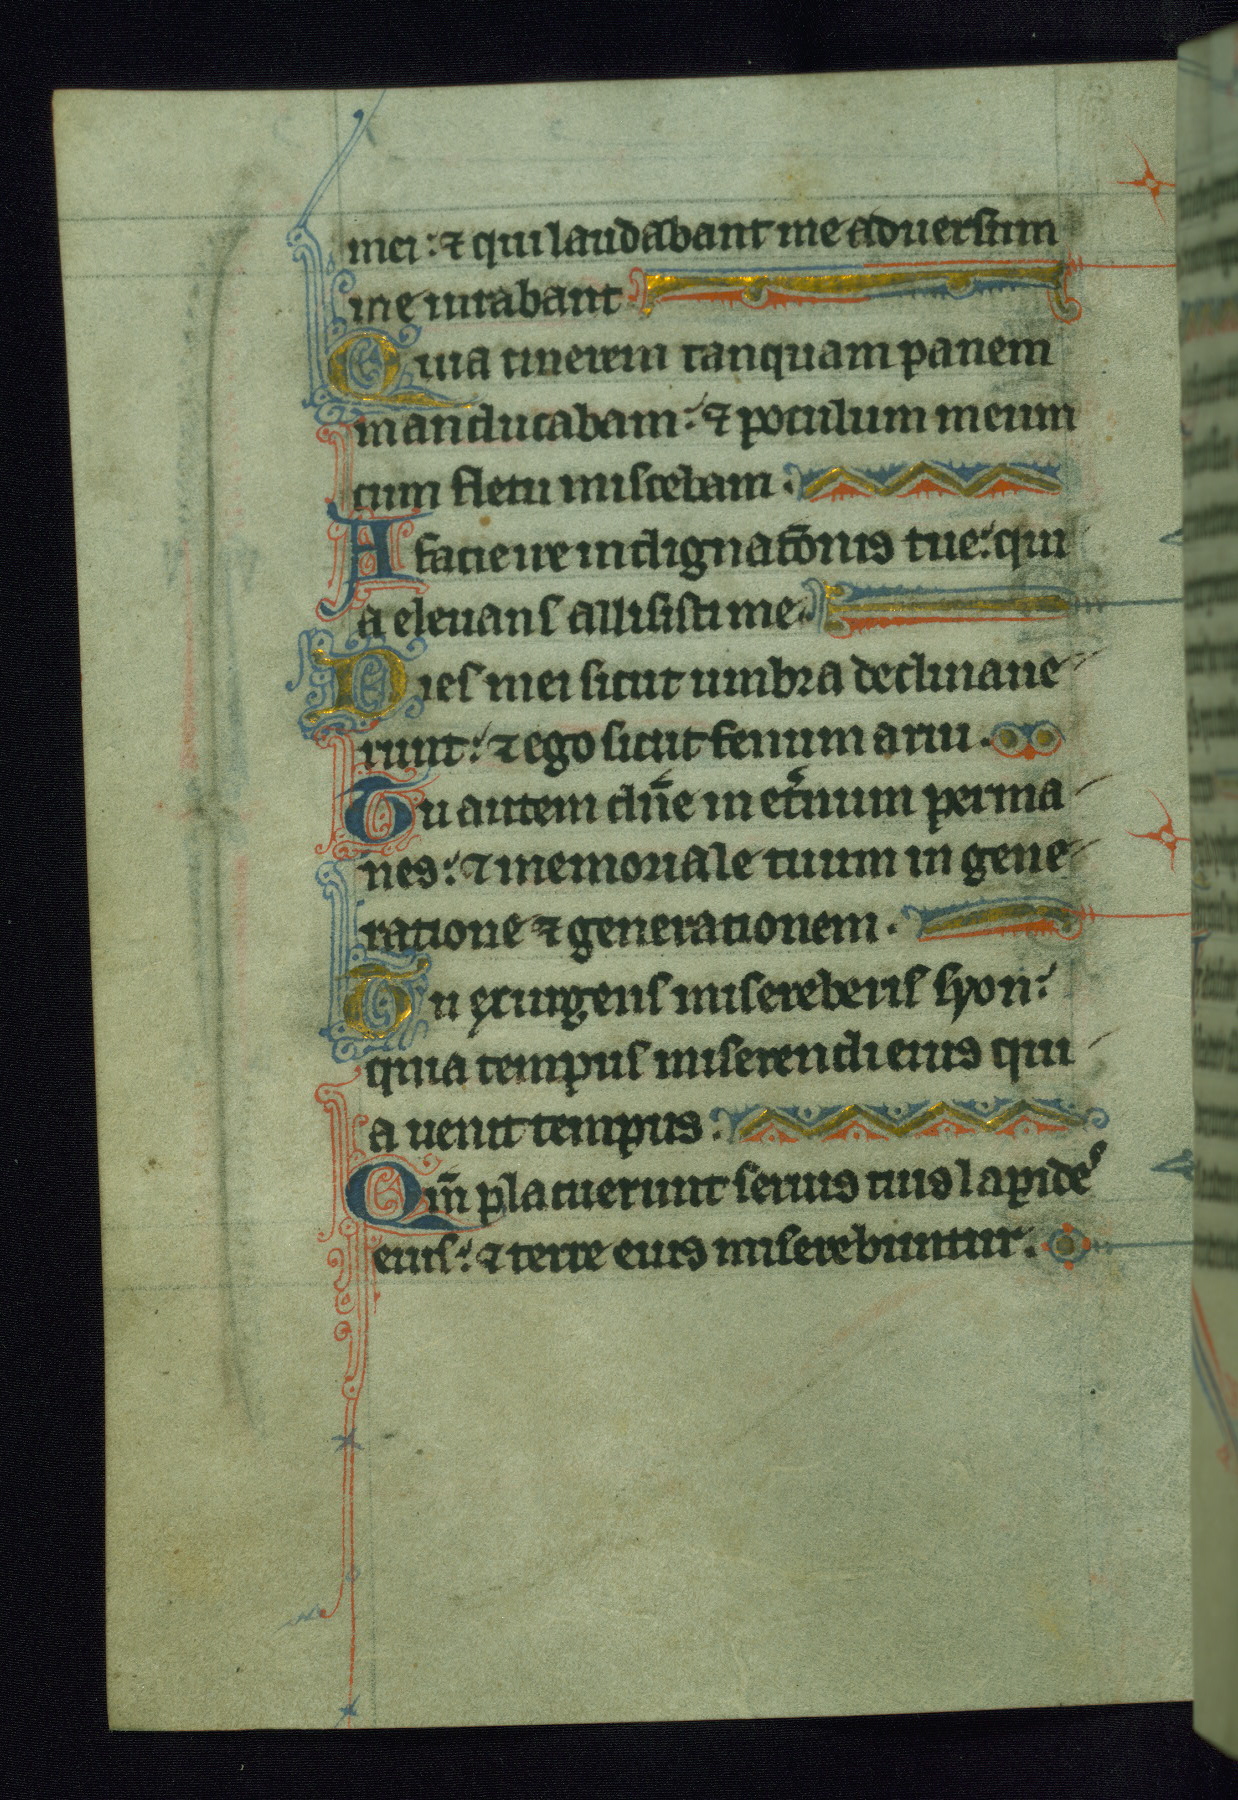 mei: ⁊ qui laudabant me aduersum
me iurabant
Quia cinerem tanquam panem
manducabam: ⁊ poculum meum
cum fletu miscebam.
A facie ire indignatōnis tue: qui
a eleuans allisisti me.
Dies mei sicut umbra declinaue
runt: ⁊ ego sicut fenum arui.
Tu autem dn̄e in et̾num perma
nes: ⁊ memoriale tuum in gene
ratione ⁊ generationem.
Tu exurgens misereberis syon:
quia tempus miserendi eius qui
a uenit tempus.
Qm̄ placuerunt seruis tuis lapide᷒
eius: ⁊ terre eius miserebuntur.